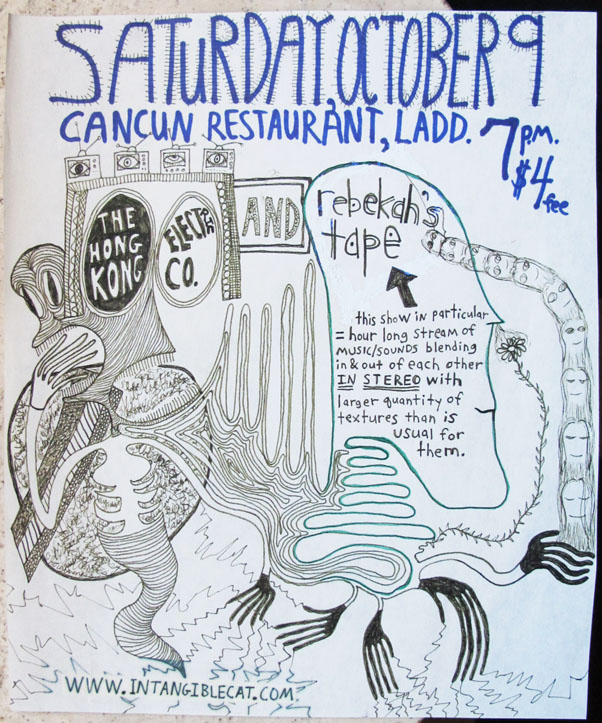 SATURDAY, OCTOBER 9
CANCUN RESTAURANT, LADD. 7 P.M.
$4 fee
THE HONG KONG
ELECTRIC CO.
AND
rebekah's
tape
this show in particular
= hour long stream of
MUSIC/SOUNDS blending
in & out of each other
IN STEREO with
larger quantity of
textures than is
usual for
them.
WWW.INTANGIBLECAT.COM